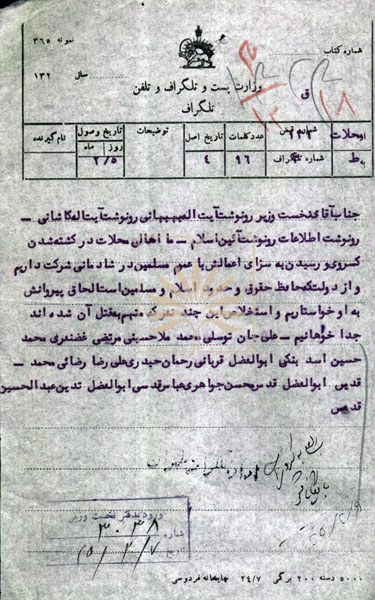 نمونه ۳۶۵
شماره کتاب
سال ۱۳۲
وزارت پست و تلگراف و تلفن
تلگراف
از محلات
شماره قبض
عدد کلمات
تاریخ اصل
توضیحات
تاریخ وصول
نام گیرنده
روز ماه
به ط
شماره تلگراف
۹۶
۴
۲/۵
جناب آقای نخست وزیر رونوشت آیت اله بهبهانی رونوشت آیت اله کاشانی –
رونوشت اطلاعات رونوشت آئین اسلام – ما اهالی محلات در کشته شدن
کسروی و رسیدن به سزای اعمالش با عموم مسلمین در شادمانی شرکت داریم
و از دولت که حافظ حقوق و حدود اسلام و مسلمین است الحاق پیروانش
به او خواستاریم و استخلاص این چند نفر که متهم بقتل آن شده اند
جدا خواهانیم – علی جان توسلی محمد ملاحسینی مرتضی غضنفری محمد
حسین اسد بنکی ابوالفضل قربانی رحمان حیدری علی رضا رضائی محمد –
قدس ابوالفضل قدس محسن جواهری عباس قدسی ابوالفضل تدین عبدالحسین
قدس
ورود بدفتر نخست وزیر
شماره ۳۰۳۸
۱۵/۲/۷
۵۰۰۰ دسته ۲۰۰ برگی ۲۴/۷ چاپخانه فردوسی